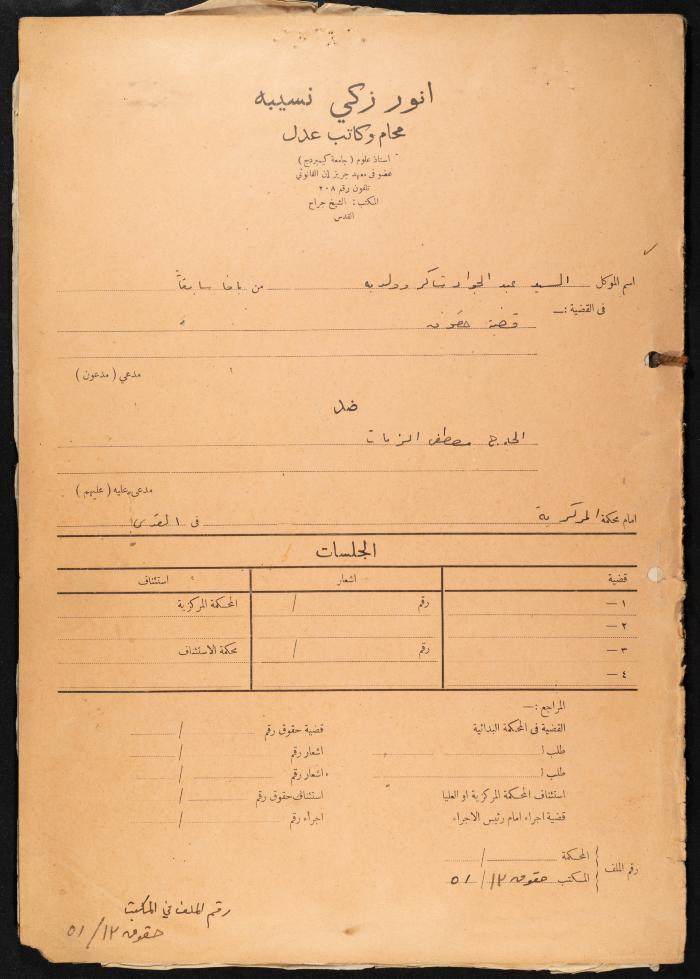 انور زكي نسيبه
محام وكاتب عدل
استاذ علوم ( جامعة كيمبردج )
عضو في معهد جريز إن القانوني
تلفون رقم ٢٠٨
المكتب : الشيخ جراح
القدس
اسم الموكل السيد عبد الجواد شاكر وولديه من يافا سابقاً
في القضية :—
قضية حقوق
مدعي ( مدعون )
ضد
الحاج مصطفى الزيات
مدعى عليه ( عليهم )
امام محكمة المركزية في القدس
الجلسات
قضية اشعار استئناف
١ — رقم / المحكمة المركزية
٢ —
٣ — رقم / محكمة الاستئناف
٤ —
المراجع :—
القضية في المحكمة البدائية قضية حقوق رقم /
طلب ! اشعار رقم /
طلب ! اشعار رقم /
استئناف المحكمة المركزية او العليا استئناف حقوق رقم /
قضية اجراء امام رئيس الاجراء اجراء رقم /
رقم الملف { المحكمة /
المكتب حقوق ١٢/ ٥١ }
رقم الملف في المكتب
حقوق ١٢/ ٥١